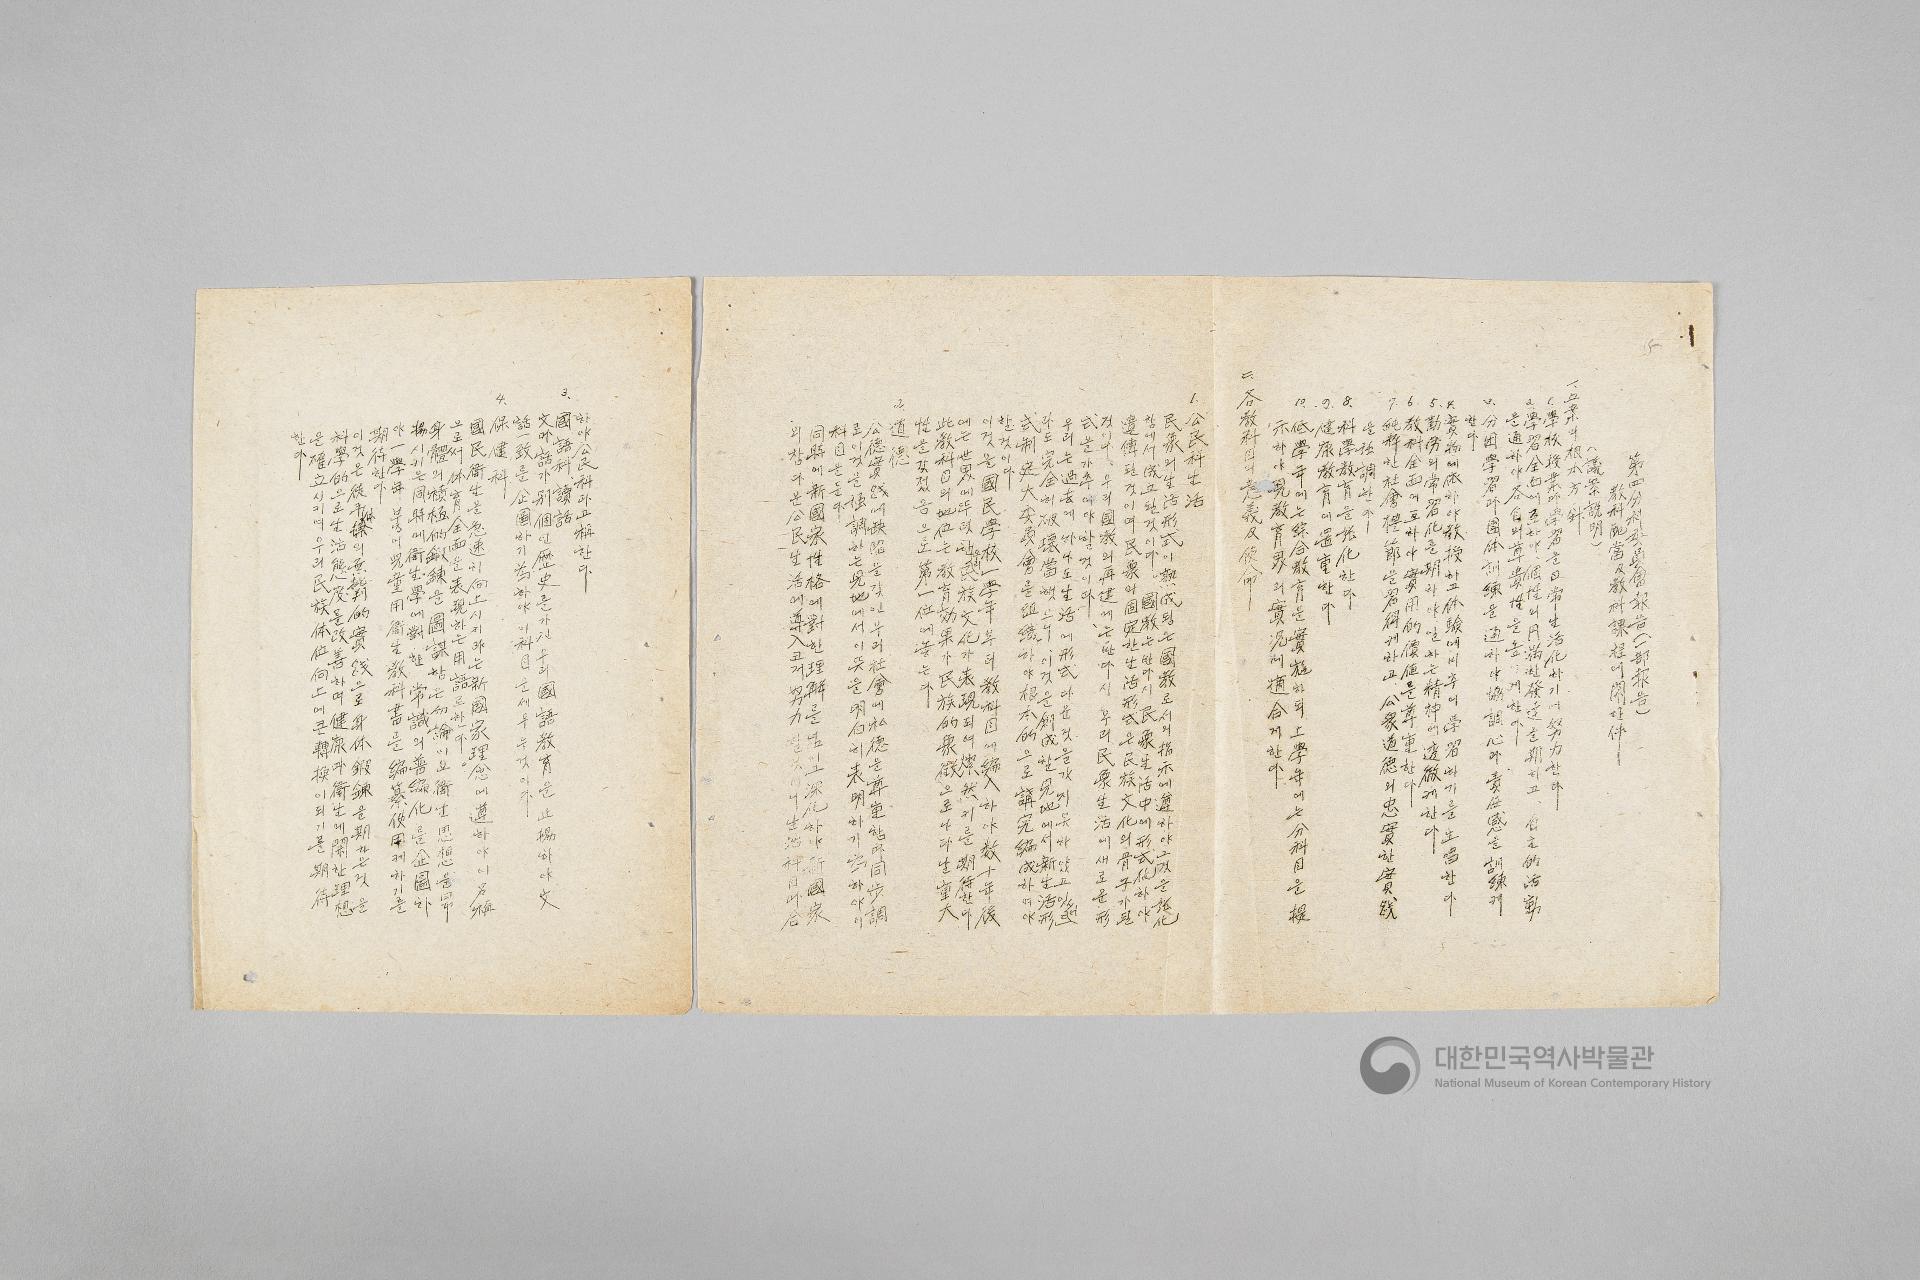 第四分科委員會報告(一部報告)
敎科配當及敎科課程에關한件
(議案說明)
一. 立案의根本方針
1. 學校授業과學習을日常生活化하기에努力한다
2. 學習全面에亘하야個性의円滿한發達을期하고、自主的活動
을通하야各自의尊貴性을높게한다
3. 分団學習과團体訓練을通하야協調心과責任感을訓練케
한다
4. 實物에依하야敎授하고体驗에비추어學習하기를主唱한다
5. 勤勞의常習化를期하야일하는精神에透徹케한다
6. 敎科全面에亘하야實用的價値를尊重한다
7. 純粹한社會禮節을習得케하고、公衆道德의忠實한實踐
을强調한다
8. 科學敎育을强化한다
9. 健康敎育에置重한다
10. 低學年에는綜合敎育을實施하되上學年에는分科目을提
示하야現敎育界의實況에適合케한다
二. 各敎科目의意義及使命
1. 公民科生活
民衆의生活形式이熟成되는國敎로서의指示에遵하야그것을强化
함에서成立된것이다。國敎는반다시民衆生活中에形式化하야
遺傳된것이며民衆의固定한生活形式은民族文化의骨子가된
것이다、우리國敎의再建에는반다시우리民衆生活에새로운形
式을가추어야할것이다
우리는過去에하나도生活에形式다운것을가지지못하얏고있섯
다도完全히破壞當햇으니 이것을創成할見地에서新生活形
式制定大委員會를組織하야根本的으로講究編成하여야
한것이다
이것을國民學校一學年부터敎科目에編入하야數十年後
에는世界에뚜렷한民族文化가表現되여燦然키를期待한다
此敎科目의地位는敎育効果가民族的象徵으로나타날重大
性을갖젓음으로第一位에놓는다
2. 道德
公德實踐에缺陷을갖인우리社會에私德을尊重함과同步調
로이것을强調하는見地에서이뜻을明白히表明하기爲하야이
科目은둔다
同時에新國家性格에對한理解를넘이고深化하야新國家
의참다운公民生活에導入코저努力할것이니生活科目과合
하야公民科라고稱한다
3. 國語科 讀話
文과話가別個인歷史를가진우리國語敎育을止揚하야文
話一致를企圖하기爲하야이科目은세우는것이다
4. 保健科
國民衛生을急速히向上시키라는新國家理念에遵하야이名稱
으로서体育全面을表現하는用語로한다。
身體의積極的鍛鍊을圖謀함은勿論이요衛生思想을昂
揚시키는同時에衛生學에對한常識의普編化를企圖하
야一學年붙어兒童用衛生敎科書를編纂使用케하기를
期待한다
이것은從來体操의無智的實踐으로身体鍛鍊을期하는것을
科學的으로生活態度를改善하며健康과衛生에關한理想
을確立시키여우리民族体位向上에큰轉換이되기를期待
한다
대한민국역사박물관
National Museum of Korean Contemporary History